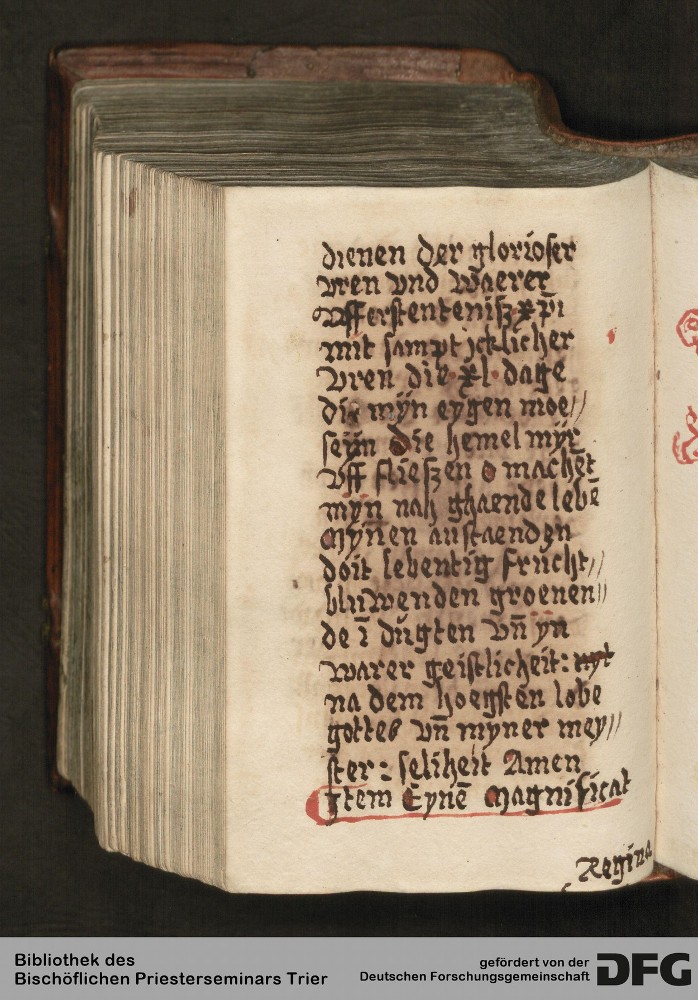 dienen der glorioser
vren vnd waerer
vfferstentenisz xp̄i
mit sampt jcklicher
vren die · xl · dage
die mÿn eygen moe//
seÿn die hemel mÿr
vff flieszen o machēt
mÿn nah ghaende lebē
mÿnen anstaenden
doit lebentig frucht//
bluwenden groenen//
de ī dugten vn̄ yn
warer geistlicheit: nyt
na dem hoegsten lobe
gottes vn̄ myner mey//
ster: seliheit Amen
Jtem Eynē Magnificat
Regina
Bibliothek des
Bischöflichen Priesterseminars Trier
gefördert von der
Deutschen Forschungsgemeinschaft DFG